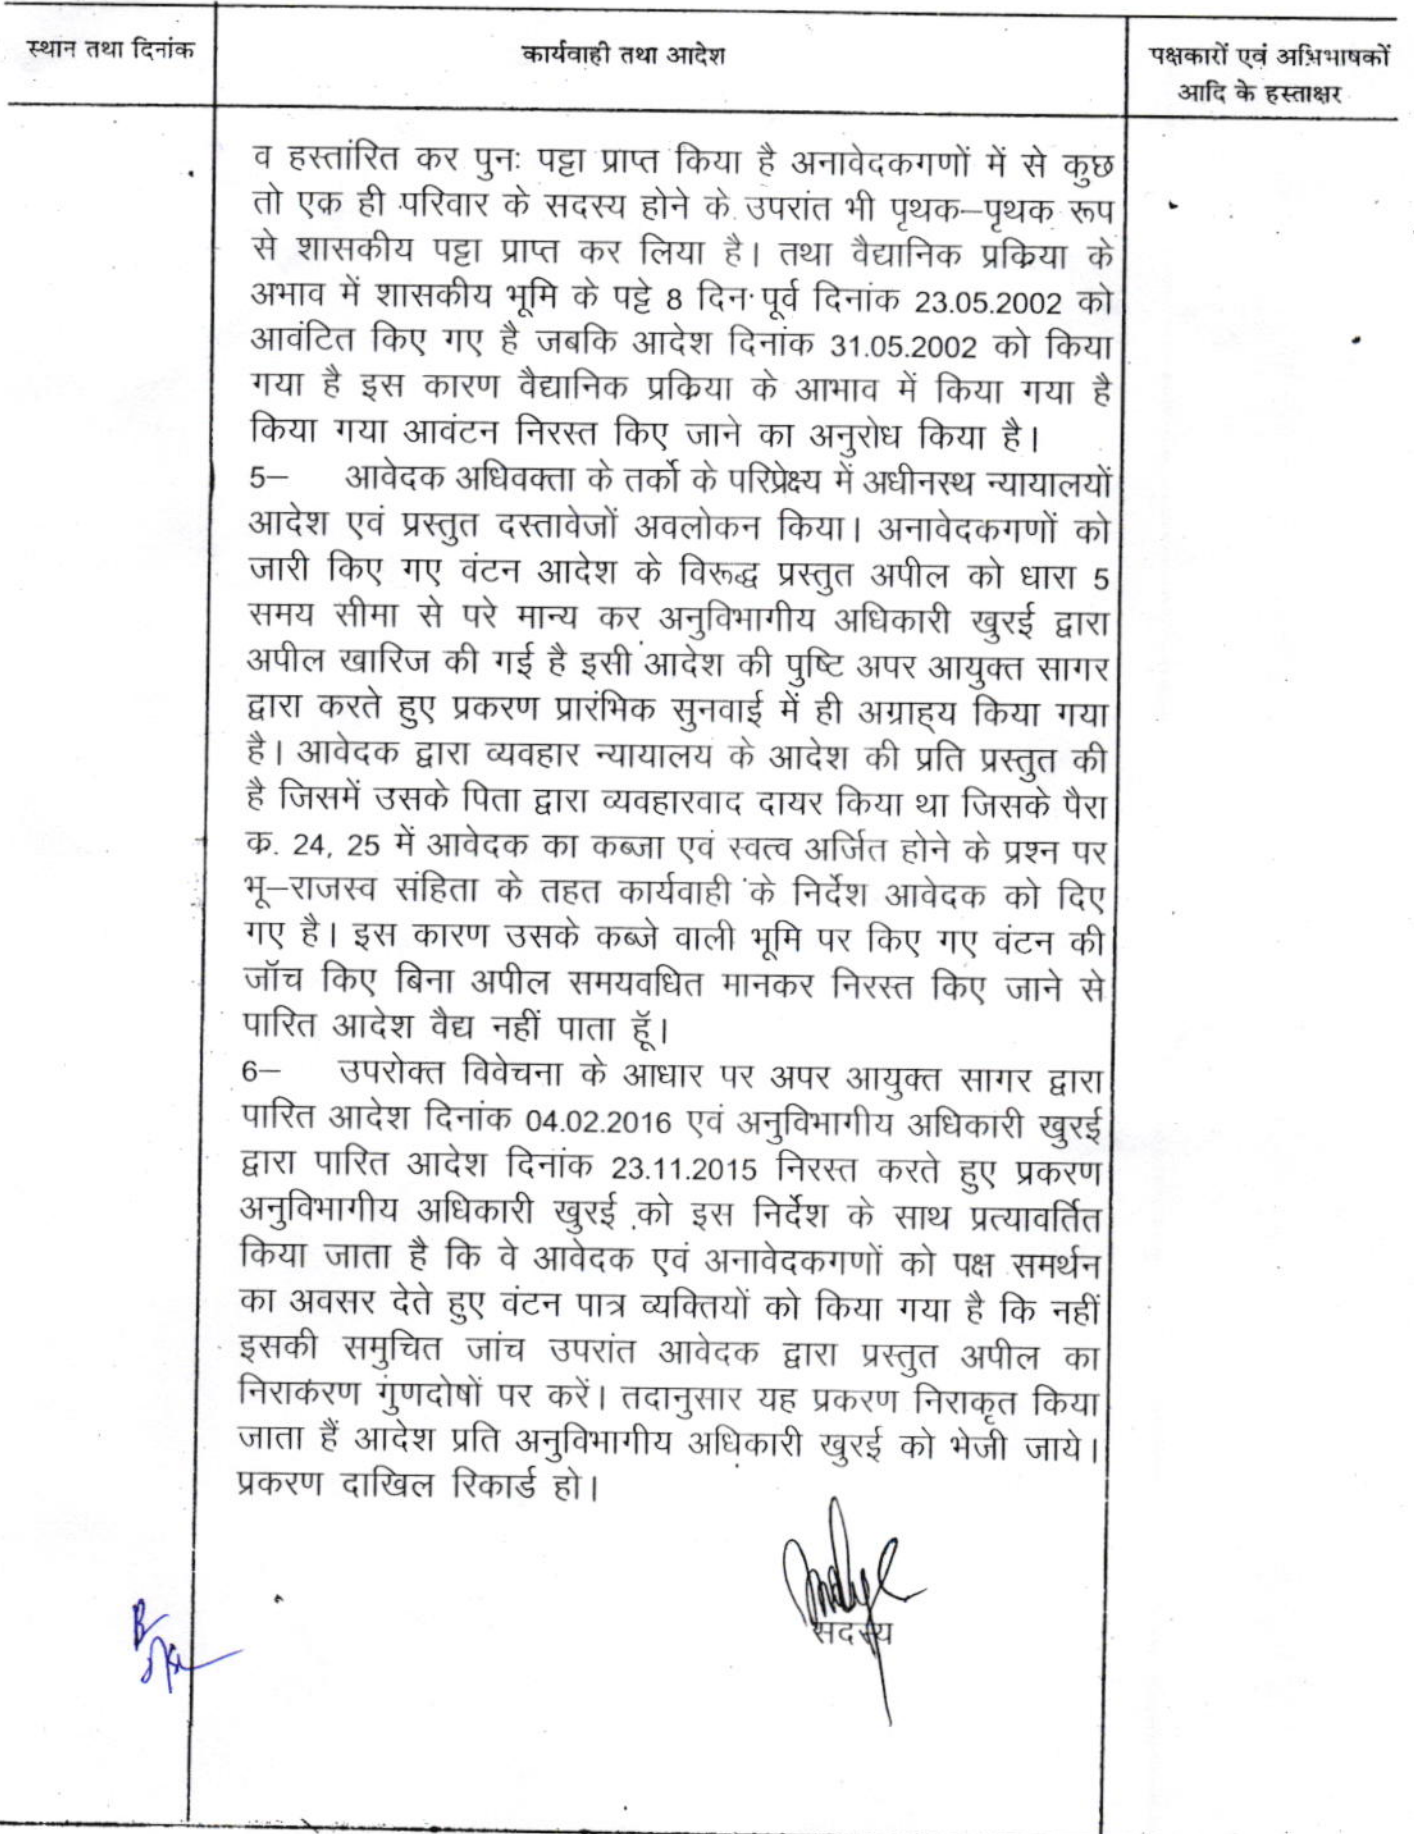 स्थान तथा दिनांक
कार्यवाही तथा आदेश
पक्षकारों एवं अभिभाषकों
आदि के हस्ताक्षर
व हस्तांरित कर पुनः पट्टा प्राप्त किया है अनावेदकगणों में से कुछ
तो एक ही परिवार के सदस्य होने के उपरांत भी पृथक–पृथक रूप
से शासकीय पट्टा प्राप्त कर लिया है। तथा वैद्यानिक प्रकिया के
अभाव में शासकीय भूमि के पट्टे 8 दिन पूर्व दिनांक 23.05.2002 को
आवंटित किए गए है जबकि आदेश दिनांक 31.05.2002 को किया
गया है इस कारण वैद्यानिक प्रकिया के आभाव में किया गया है
किया गया आवंटन निरस्त किए जाने का अनुरोध किया है।
5– आवेदक अधिवक्ता के तर्को के परिप्रेक्ष्य में अधीनस्थ न्यायालयों
आदेश एवं प्रस्तुत दस्तावेजों अवलोकन किया। अनावेदकगणों को
जारी किए गए वंटन आदेश के विरूद्ध प्रस्तुत अपील को धारा 5
समय सीमा से परे मान्य कर अनुविभागीय अधिकारी खुरई द्वारा
अपील खारिज की गई है इसी आदेश की पुष्टि अपर आयुक्त सागर
द्वारा करते हुए प्रकरण प्रारंभिक सुनवाई में ही अग्राह्य किया गया
है। आवेदक द्वारा व्यवहार न्यायालय के आदेश की प्रति प्रस्तुत की
है जिसमें उसके पिता द्वारा व्यवहारवाद दायर किया था जिसके पैरा
क. 24, 25 में आवेदक का कब्जा एवं स्वत्व अर्जित होने के प्रश्न पर
भू–राजस्व संहिता के तहत कार्यवाही के निर्देश आवेदक को दिए
गए है। इस कारण उसके कब्जे वाली भूमि पर किए गए वंटन की
जॉच किए बिना अपील समयवधित मानकर निरस्त किए जाने से
पारित आदेश वैद्य नहीं पाता हूॅ।
6– उपरोक्त विवेचना के आधार पर अपर आयुक्त सागर द्वारा
पारित आदेश दिनांक 04.02.2016 एवं अनुविभागीय अधिकारी खुरई
द्वारा पारित आदेश दिनांक 23.11.2015 निरस्त करते हुए प्रकरण
अनुविभागीय अधिकारी खुरई को इस निर्देश के साथ प्रत्यावर्तित
किया जाता है कि वे आवेदक एवं अनावेदकगणों को पक्ष समर्थन
का अवसर देते हुए वंटन पात्र व्यक्तियों को किया गया है कि नहीं
इसकी समुचित जांच उपरांत आवेदक द्वारा प्रस्तुत अपील का
निराकरण गुंणदोषों पर करें। तदानुसार यह प्रकरण निराकृत किया
जाता हैं आदेश प्रति अनुविभागीय अधिकारी खुरई को भेजी जाये।
प्रकरण दाखिल रिकार्ड हो।
सदस्य